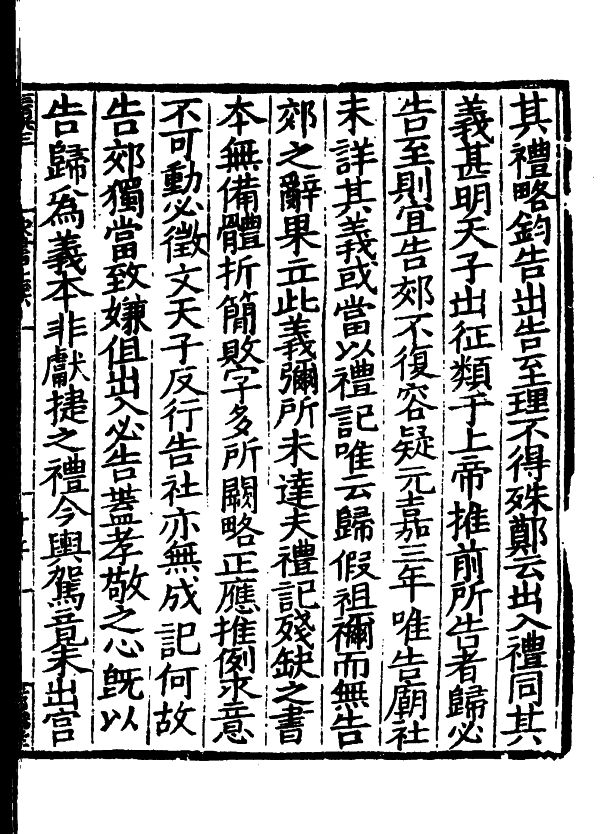 其禮略鈞告出告至理不得殊鄭云出入禮同其
義甚明天子出征類于上帝推前所告者歸必
告至則宜告郊不復容疑元嘉三年唯告廟社
未詳其義或當以禮記唯云歸假祖禰而無告
郊之辭果立此義彌所未達夫禮記殘缺之書
本無備體折簡敗字多所闕略正應推例求意
不可動必徵文天子反行告社亦無成記何故
告郊獨當致嫌但出入必告蓋孝敬之心旣以
告歸爲義本非獻捷之禮今輿駕竟未出宫